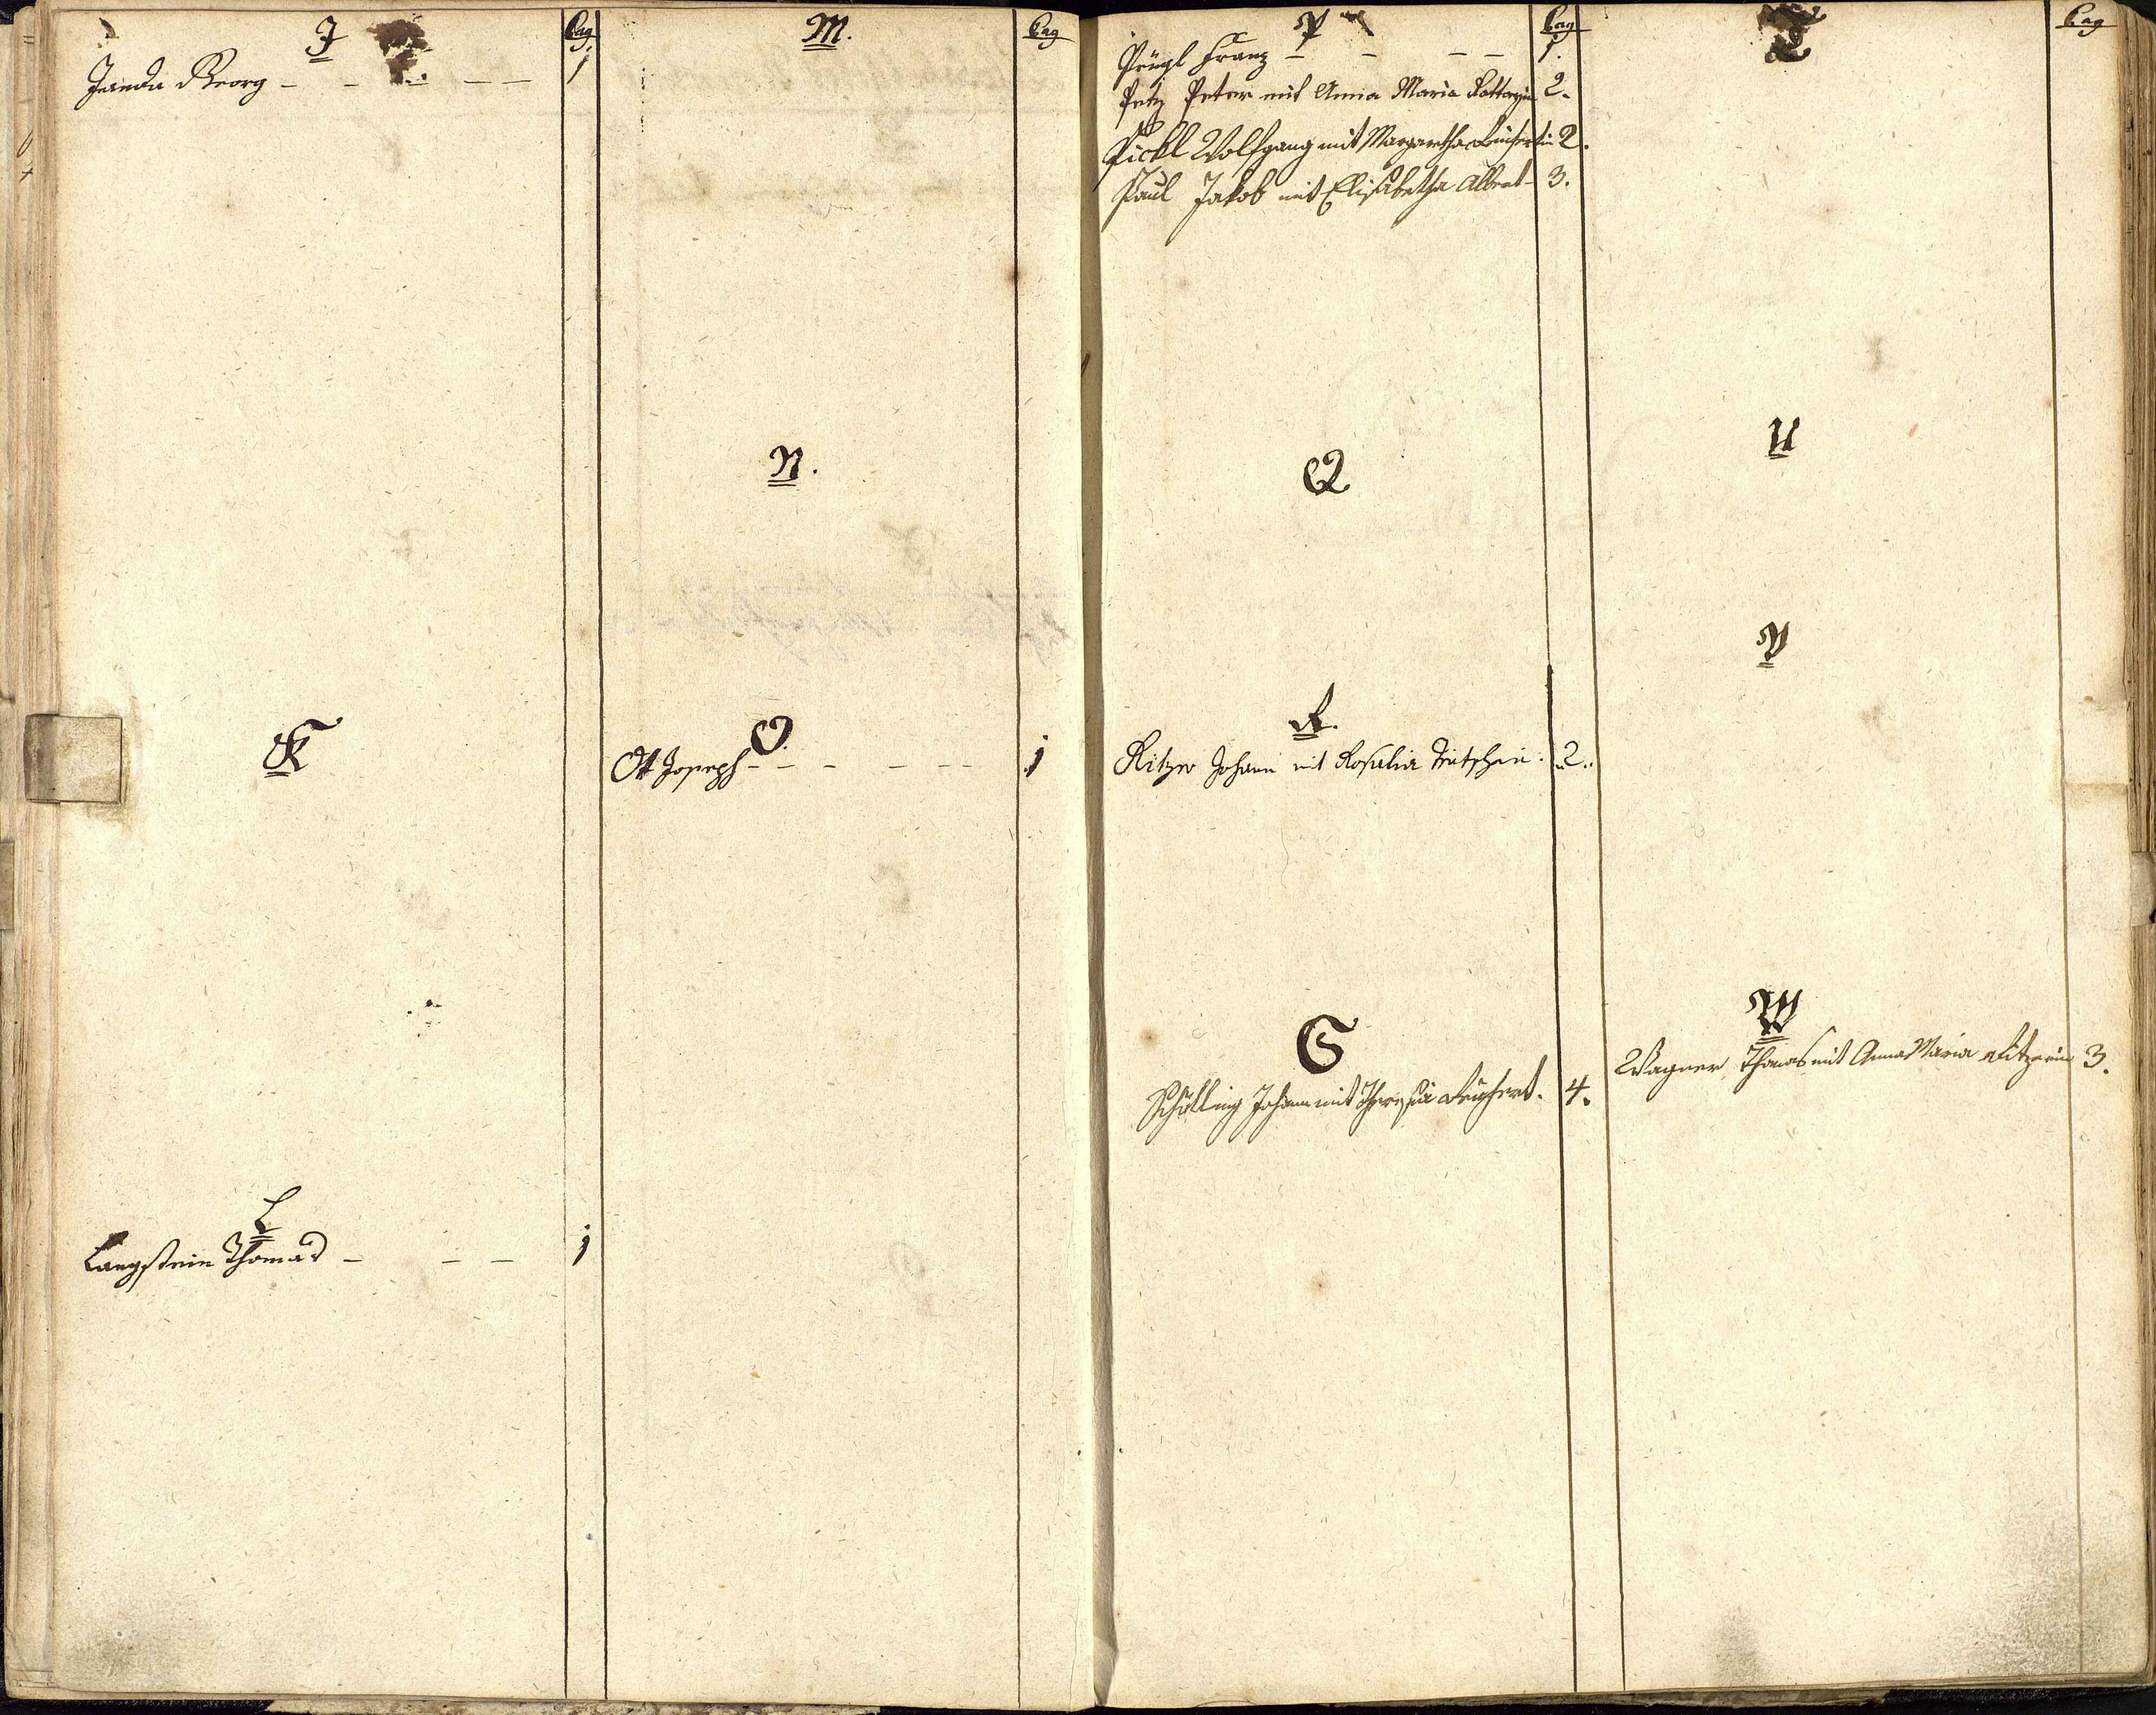 J
Pag
Janda Georg - - - - - 1
K
L
Langstein Thomas - - - 1
M.
Pag
N.
O.
Ott Joseph - - - - - - 1
P
Pag
Prügl Franz - - - - 1.
Petz Peter mit Anna Maria 2.
Pickl Wolfgang mit Margaretha 2.
Paul Jakob mit Elisabetha Albert - 3.
Q
R.
Ritzer Johann mit Rosalia 2.
S
Schilling Johann mit Theresia 4.
T
Pag
U
V
W
Wagner Thomas mit Anna Maria Ritzerin 3.